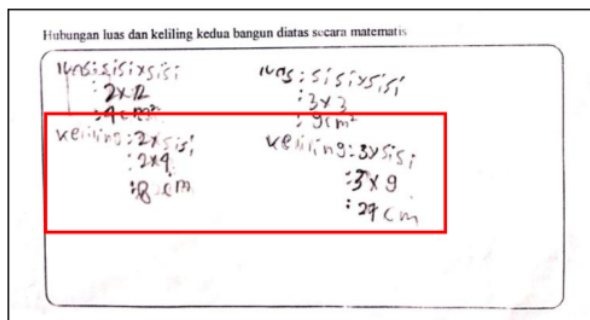 Hubungan luas dan keliling kedua bangun diatas secara matematis
luas : sisi x sisi
: 2 x 2
: 4 cm²
luas : sisi x sisi
: 3 x 3
: 9 cm²
keliling : 2 x sisi
: 2 x 4
: 8 cm
keliling : 3 x sisi
: 3 x 9
: 27 cm